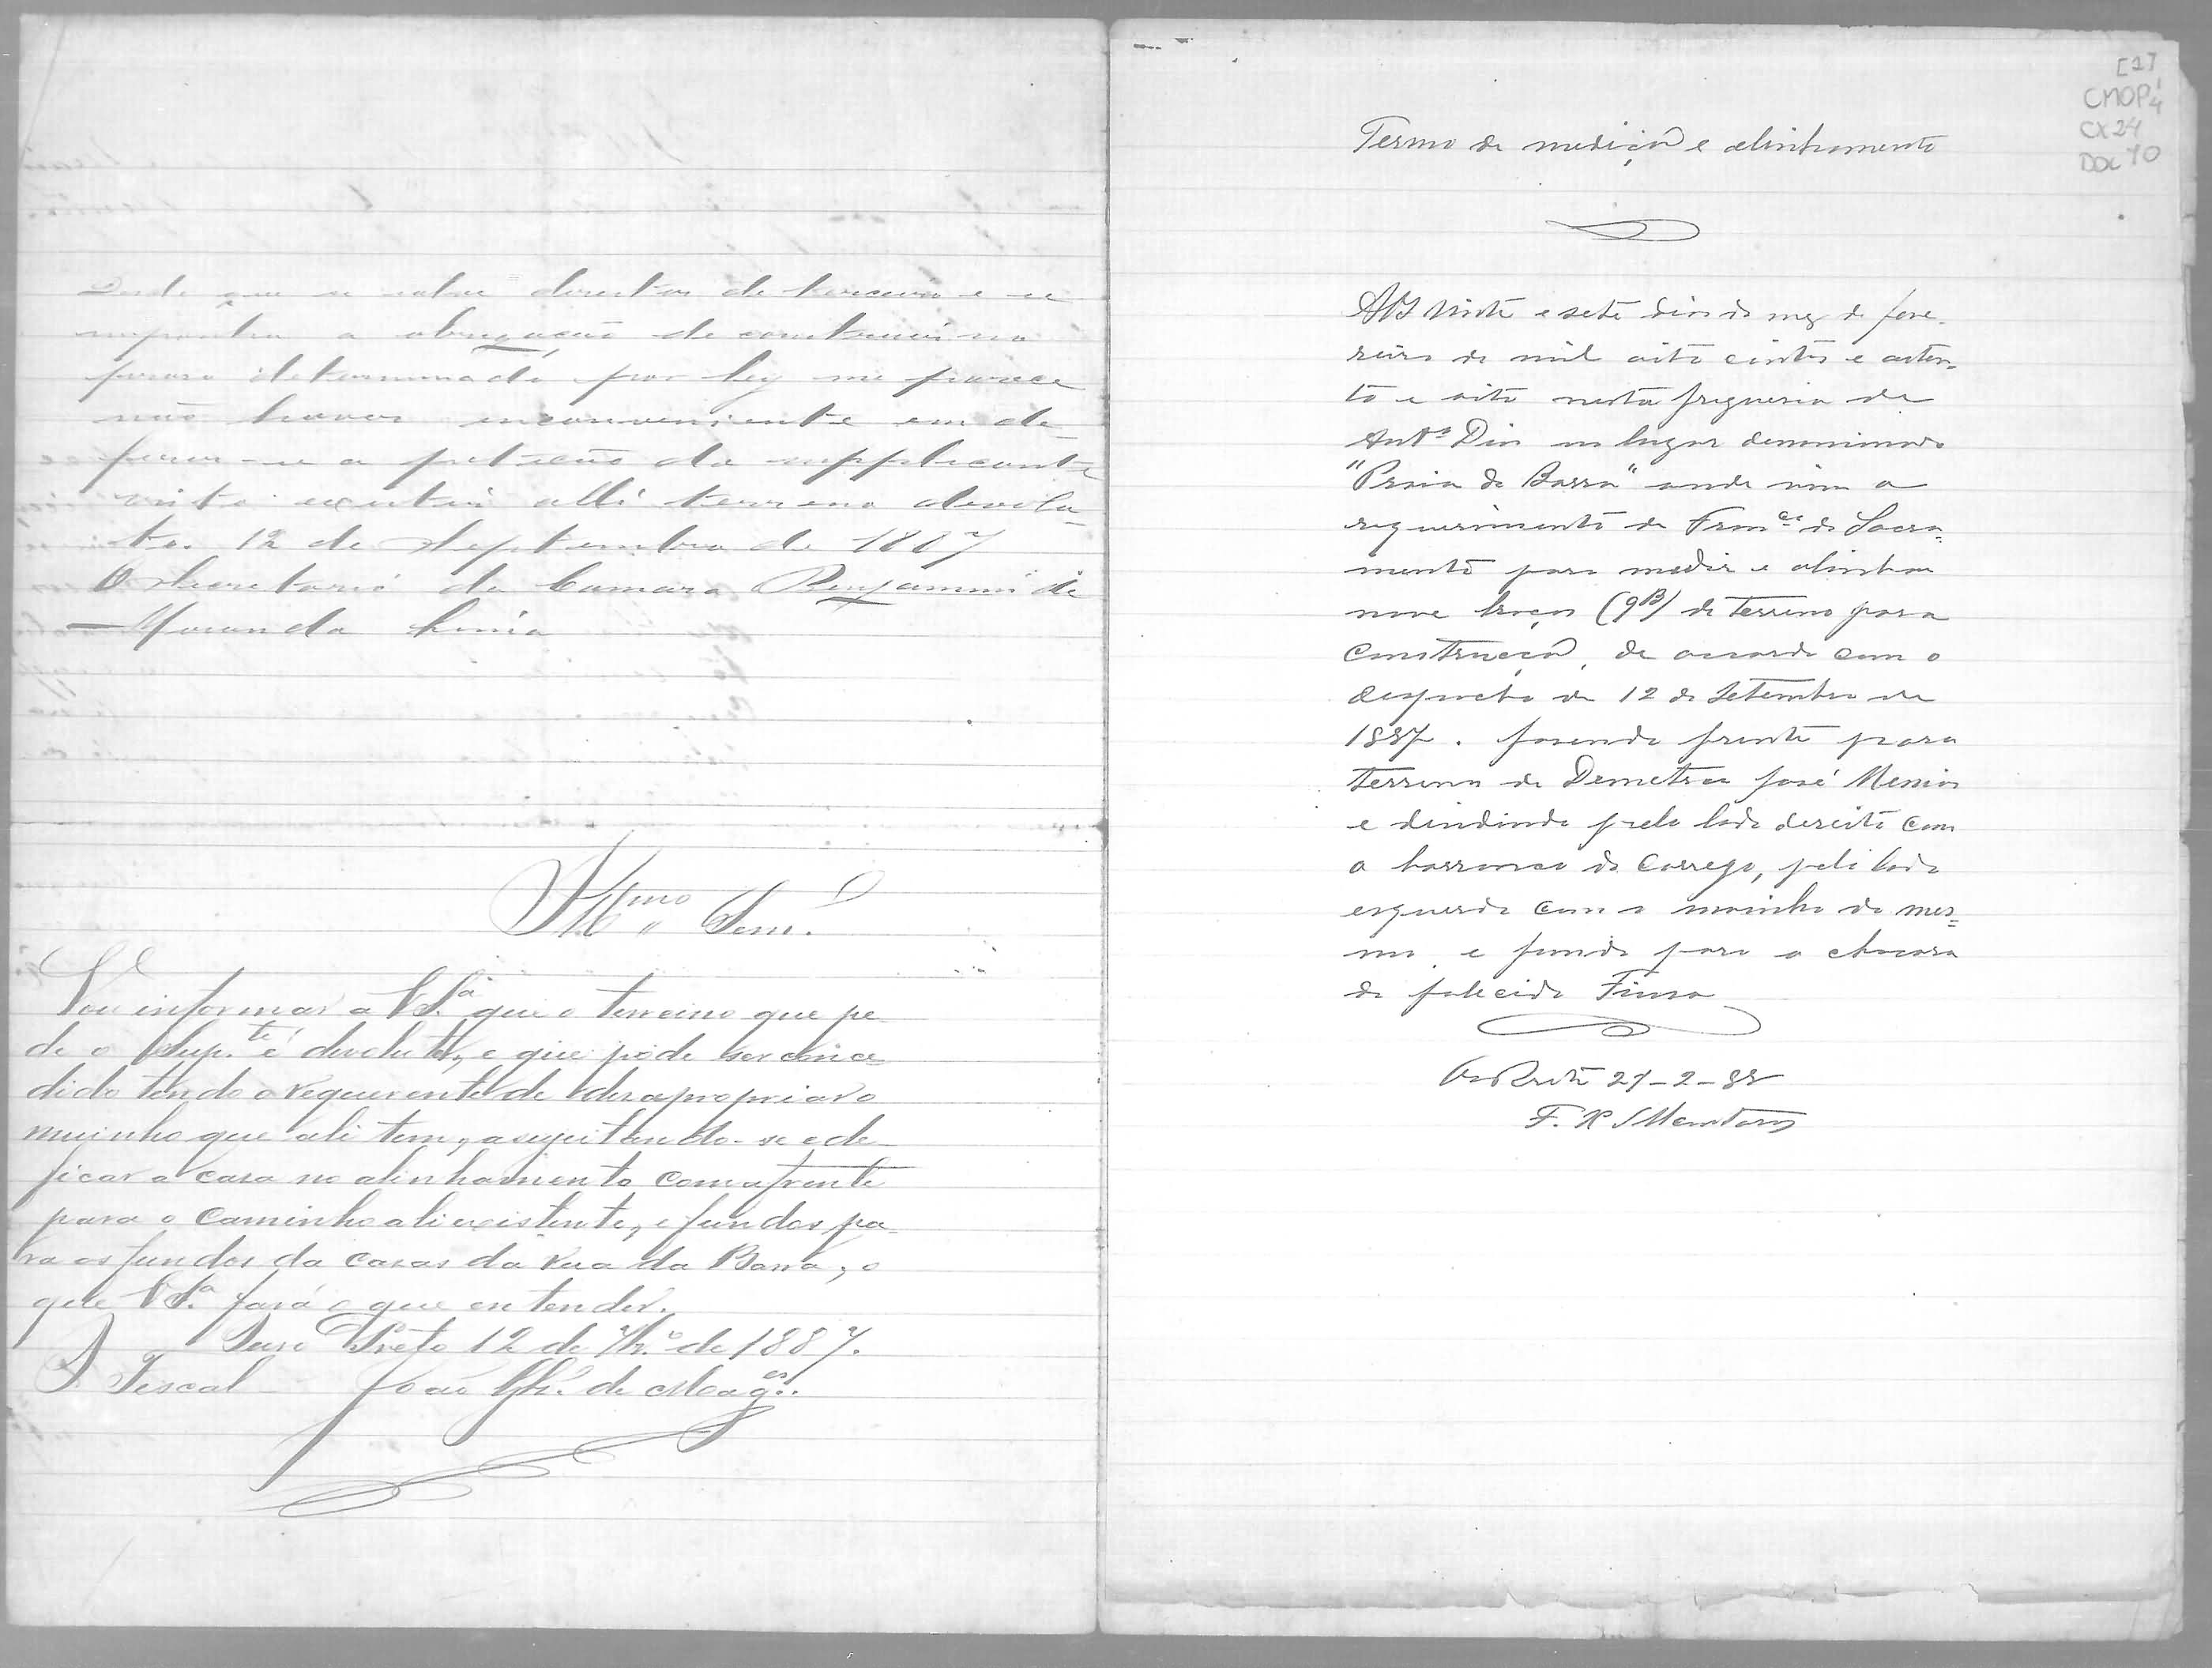 Desde que se salve direitos de terceiro e se
imponha a obrigação de construcção na
forma determinada por ley me parece
não haver inconveniente em de-
ferir-se a petição do supplicante
visto existir alli terreno devolu-
to. 12 de Septembro de 1887
O Secretario da Camara Benjamim de
Miranda Lima
Illmo Senr.
Vou informar a V S.a que o terreino que pe-
de o Sup.te é devoluto, e que pode ser conce-
dido tendo o requerente de desapropriar o
muinho que ali tem, asugeitando-se ede-
ficar a casa no alinhamento com a frente
para o Caminho ali existente, e fundos pa-
ra os fundos da casas da Rua da Barra, o
que V S.a fará o que entender.
Ouro Preto 12 de 7br.o de 1887.
O Fiscal João de Mag.es
[1]
CMOP
CX 24
DOC 40
Termo de medição e alinhamento
Aos vinte e sete dias do mez de feve-
reiro de mil oito centos e oiten-
ta e oito nesta freguesia de
Ant.o Dias no lugar denominado
"Praia da Barra" onde vim a
requerimento de Fran.co do Sacra-
mento para medir e alinhar
nove braças (9B) de terreno para
construcção, de accordo com o
despacho de 12 de Setembro de
1887. fasendo frente para
terreno de Demetrio José Messias
e dividindo pelo lado direito com
o barranco do Corrego, pelo lado
esquerdo com o moinho do mes-
mo, e fundo para a chacara
do falecido
Oro Preto 27-2-88
F. X